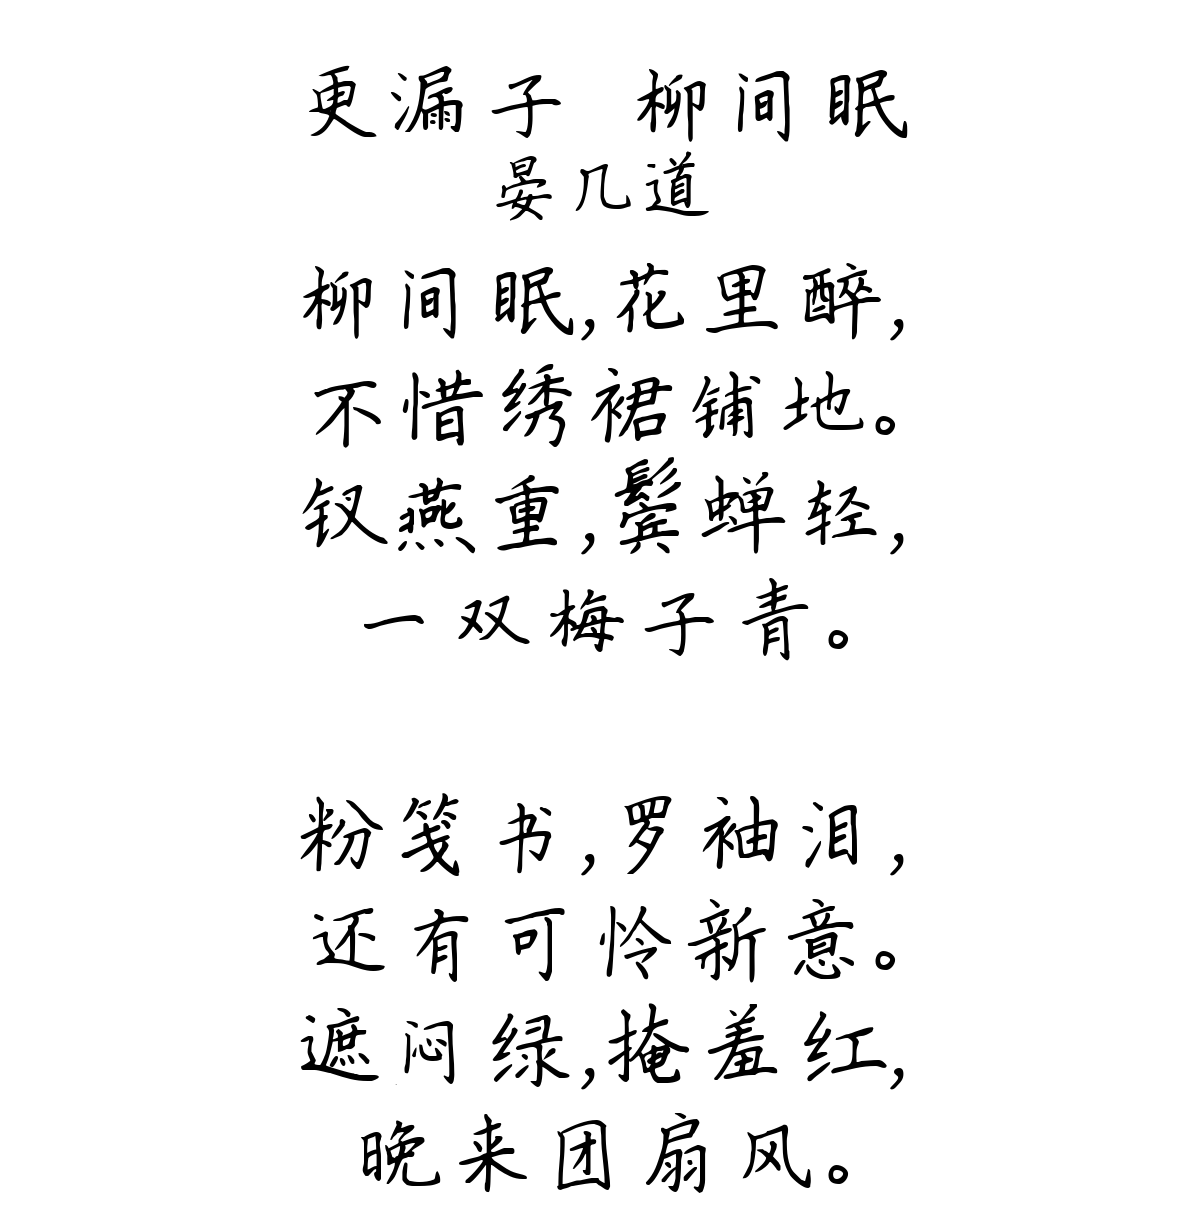 更漏子 柳间眠
晏几道
柳间眠,花里醉,
不惜绣裙铺地。
钗燕重,鬓蝉轻,
一双梅子青。
粉笺书,罗袖泪,
还有可怜新意。
遮闷绿,掩羞红,
晚来团扇风。